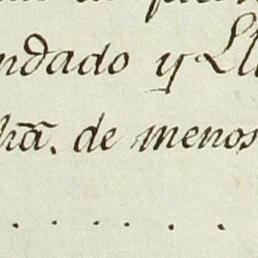 ndado y Ll
hã. de menos
. . . . . .